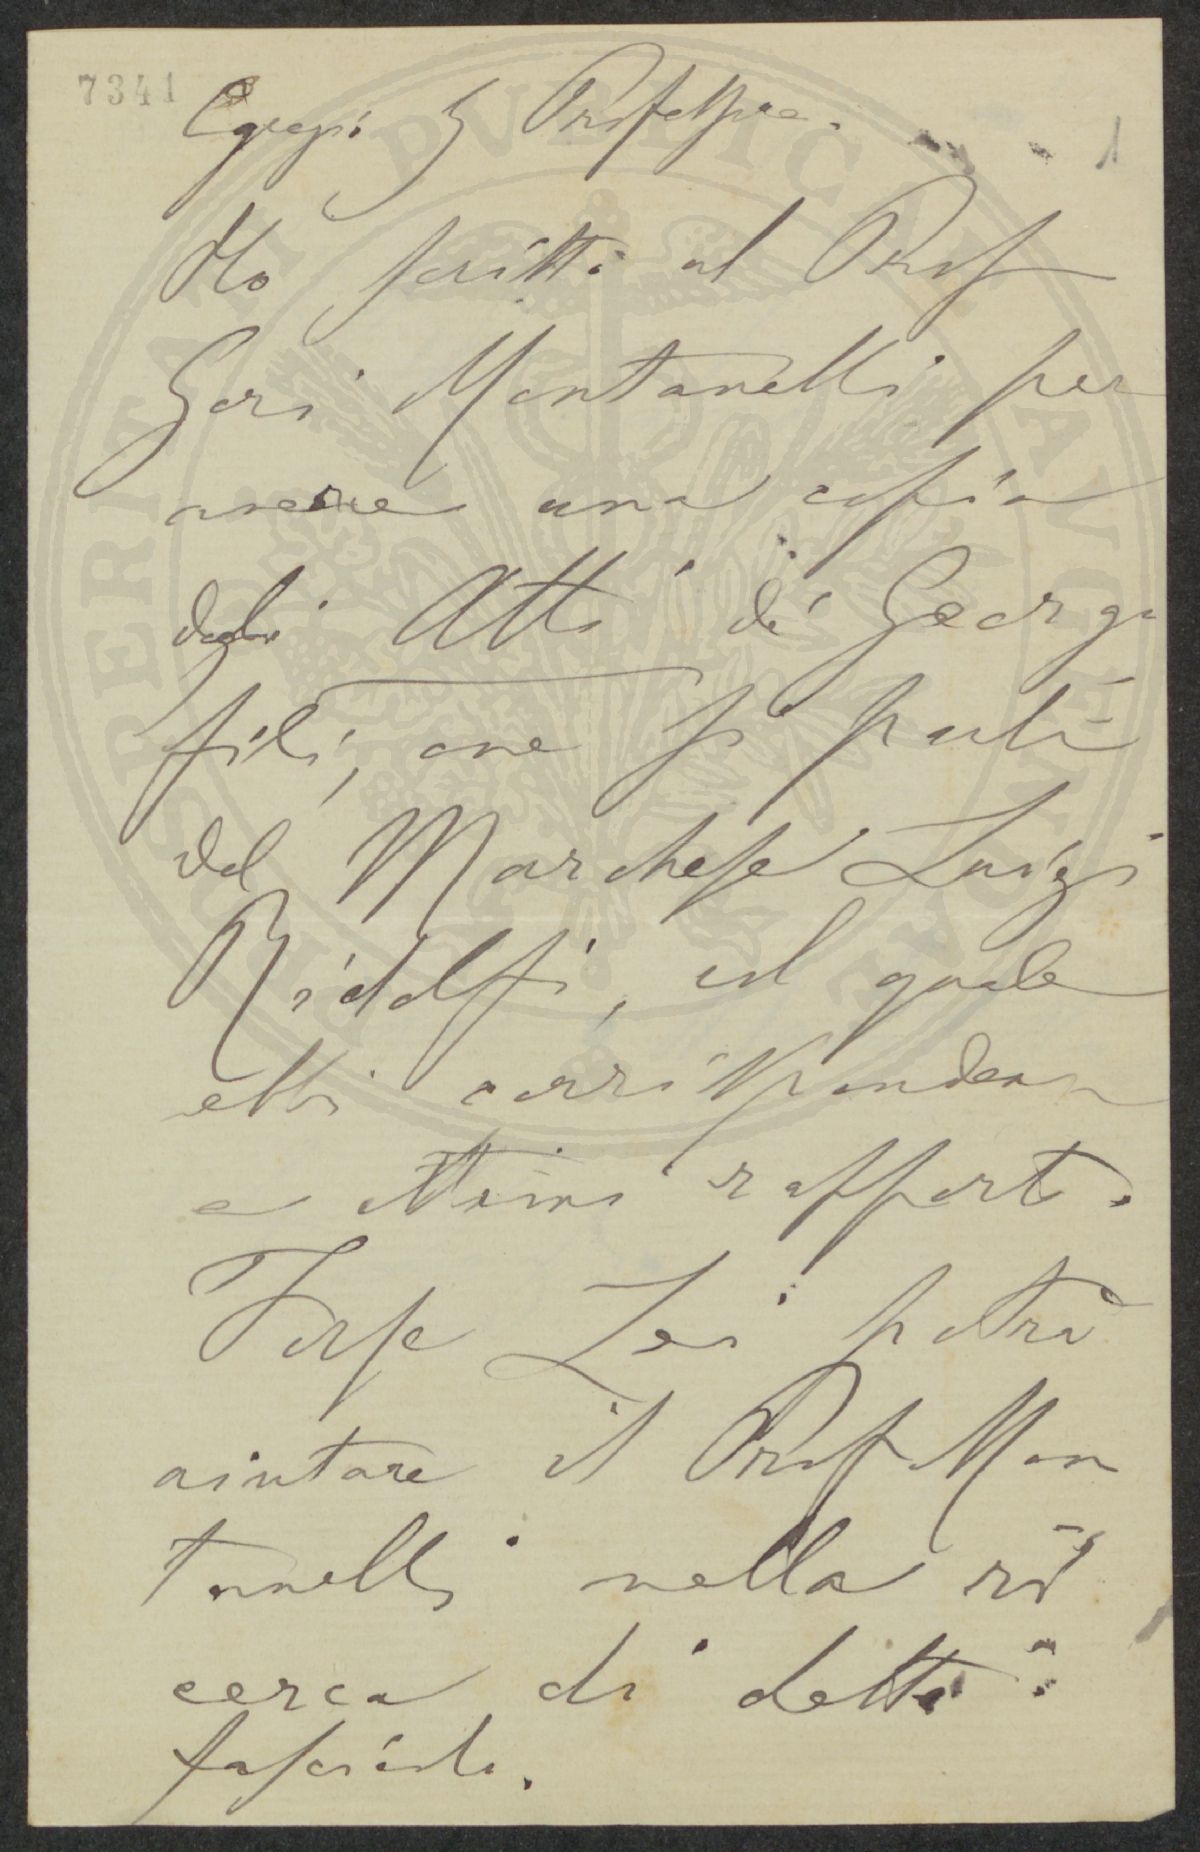 7341
1
Egregio S Professore.
Ho scritto al Prof
Gori Montanelli per
avere una copia
degli Atti de' Georgo
fili, ove si parli
del Marchese Luigi
Ridolfi, col quale
ebbi corrisponden
e ottimi rapporti.
Forse Lei potrà
aiutare il Prof Mon
tanelli nella ri
cerca di detto
fascicolo.